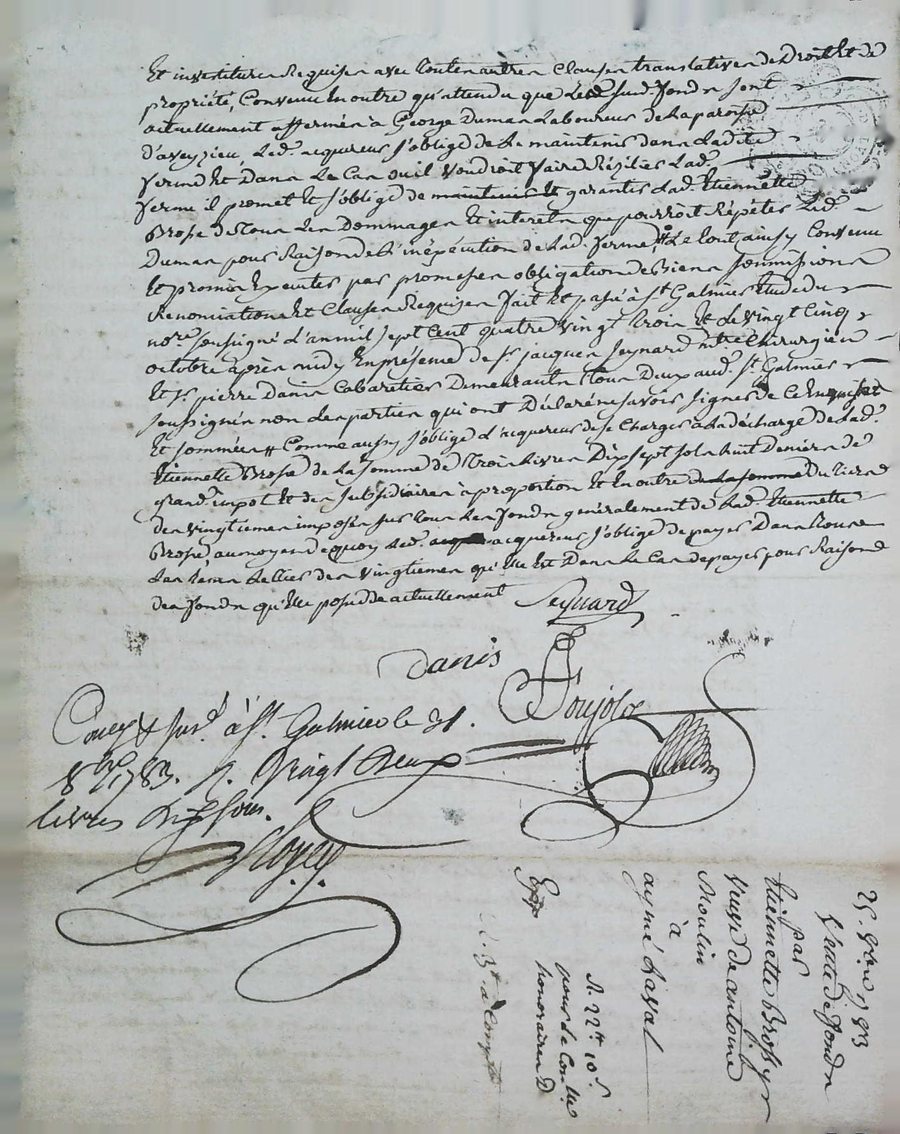 Et investiture Requises avec toutes autres Clauses translatives de Droits et de
propriété, Convenu En outre qu'attendu que Lesd. susd. fonds sont
actuellement affermés à George Dumas Laboureur de La paroisse
d'aveyzieu, Led. acquereur s'oblige de Le maintenir dans Ladite
ferme Et Dans Le Cas ou il Voudroit faire Résilier Lad.
ferme il promet Et s'oblige de maintenir Et garantir Lad. Etiennette
Brosse de Tous Les Dommages Et interets que pourroit Répéter Led.
Dumas pour Raison de L'inéxécution de Lad. ferme, # Le tout aussy Convenu
Et promis Executer par promesses obligation de Biens soumissions
Renonciations Et Clauses Requises fait Et passé à St Galmier Etude du
nore. soussigné L'an mil sept Cent quatre vingt trois Et Le vingt Cinq
octobre après midy En présence de sr. jacques seynard mtre Chirurgien
Et sr. pierre Danis Cabaretier Demeurants tous Deux aud. st. Galmier
soussignés non Les parties qui ont Déclaré ne savoir signer de Ce Enquises
Et sommées # Comme aussy s'oblige L'acquereur de se Charger à La décharge de Lad.
Etiennette Brosse de La somme de Trois Livres Dix sept sols huit Deniers de
grand impot Et des subsidiaires à proportion Et En outre de La somme du tiers
des vingtiemes imposés sur tous Les fonds généralement de Lad. Etiennette
Brosse, au moyen de quoy Led. acquereur s'oblige de payer Dans
Les Rolles des vingtiemes qu'Elle Est Dans Le Cas de payer pour Raison
des fonds qu'Elle possède actuellement Seynard
Danis
Poujol
à St. Galmier le 31.
8bre 1783. R. Vingt deux
livres dix sous.
25. 8bre 1783
Vente de fonds
par
Etiennette Brosse
veuve de antoine
Moulin
à
aymé Laval
Exp
R. 22ff 10s.
pour le Conlle
honoraires D